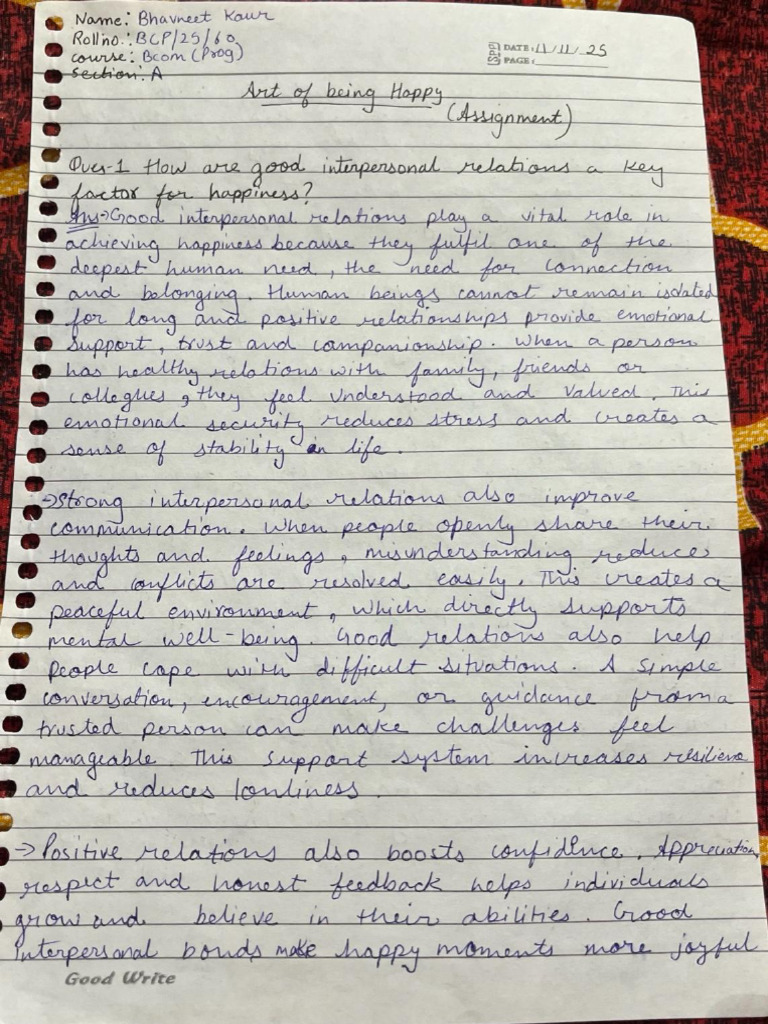 Name: Bhavneet Kaur
Rollno.: BCP/25/60
course: Bcom (Prog)
Section: A
DATE: 11/11/25
PAGE:
Art of being Happy
(Assignment)
Ques-1 How are good interpersonal relations a key
factor for happiness?
Ans→Good interpersonal relations play a vital role in
achieving happiness because they fulfil one of the
deepest human need, the need for connection
and belonging. Human beings cannot remain isolated
for long and positive relationships provide emotional
support, trust and companionship. When a person
has healthy relations with family, friends or
collegues, they feel understood and valued. This
emotional security reduces stress and creates a
sense of stability in life.
→Strong interpersonal relations also improve
communication. When people openly share their
thoughts and feelings, misunderstanding reduces
and conflicts are resolved easily. This creates a
peaceful environment, which directly supports
mental well-being. Good relations also help
people cope with difficult situations. A simple
conversation, encouragement, or guidance from a
trusted person can make challenges feel
manageable. This support system increases
and reduces lonliness.
→Positive relations also boosts confidence. Appreciation,
respect and honest feedback helps individuals
grow and believe in their abilities. Good
interpersonal bonds make happy moments more joyful
Good Write